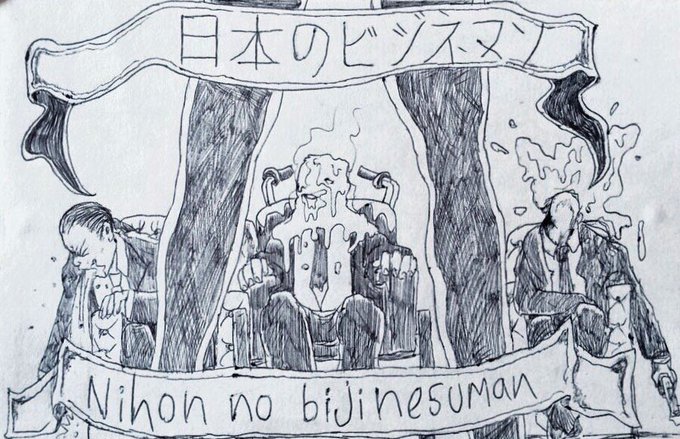 日本のビジネマン
Nihon no bijinesuman